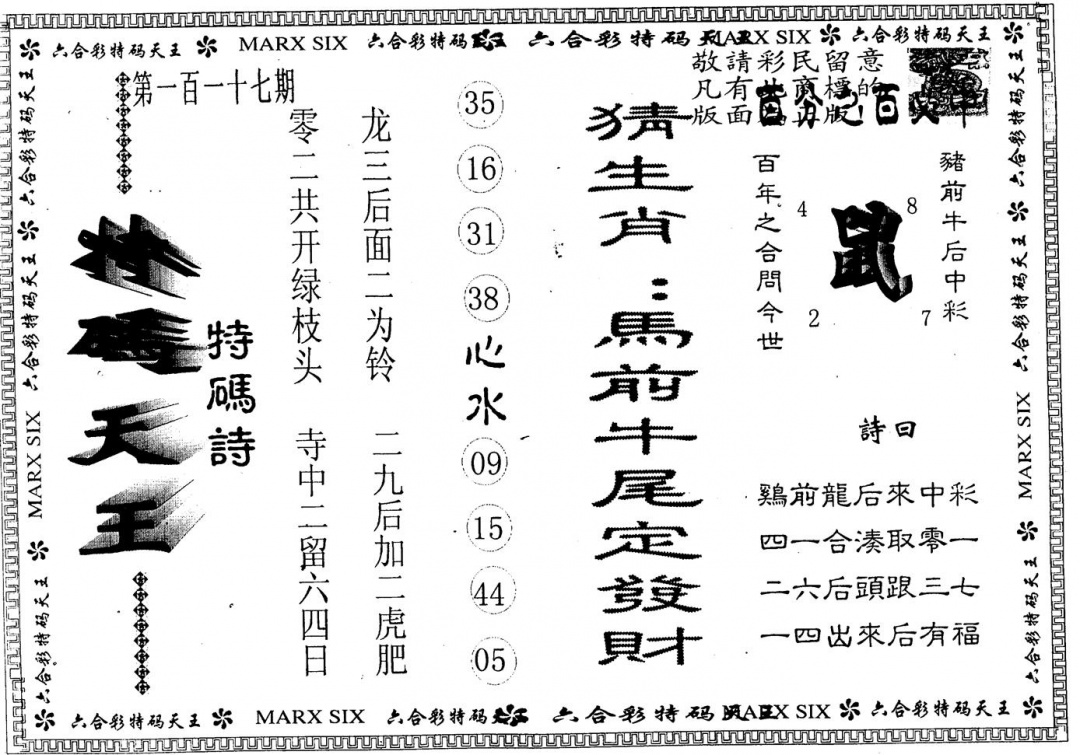 六合彩特码天王 MARX SIX 六合彩特码天王 六合彩特码天王 MARX SIX 六合彩特码天王
敬請彩民留意
凡有此商標的
版面為正版
百分之百
豬前牛后中彩
鼠
8
7
4
2
百年之合問今世
詩曰
鷄前龍后來中彩
四一合湊取零一
二六后頭跟三七
一四出來后有福
猜生肖：馬前牛尾定發財
35
16
31
38
心水
09
15
44
05
龙三后面二为铃 二九后加二虎肥
零二共开绿枝头 寺中二留六四日
第一百一十七期
特碼詩
特碼天王
六合彩特码天王 六合彩特码天王 MARX SIX 六合彩特码天王
六合彩特码天王 六合彩特码天王 MARX SIX 六合彩特码天王
六合彩特码天王 MARX SIX 六合彩特码天王 六合彩特码天王 MARX SIX 六合彩特码天王